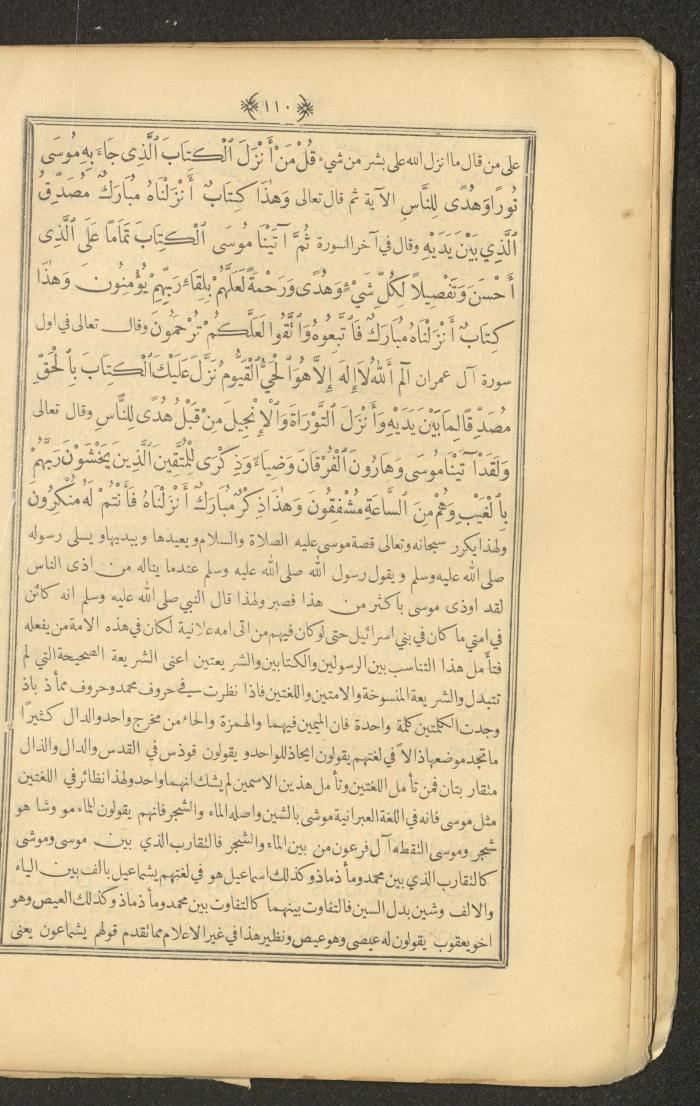 ١١٠
على من قال ما انزل الله على بشر من شيء قُلْ مَنْ أَنْزَلَ ٱلْكِتَابَ ٱلَّذِى جَاءَ بِهِ مُوسَى
نُورًا وَهُدًى لِلنَّاسِ الآية ثم قال تعالى وَهٰذَا كِتَابٌ أَنْزَلْنَاهُ مُبَارَكٌ مُصَدِّقُ
ٱلَّذِي بَيْنَ يَدَيْهِ وقال في آخر السورة ثُمَّ آتَيْنَا مُوسَى ٱلْكِتَابَ تَمَامًا عَلَى ٱلَّذِى
أَحْسَنَ وَتَفْصِيلاً لِكُلِّ شَيْءٍ وَهُدًى وَرَحْمَةً لَعَلَّهُمْ بِلِقَاءِ رَبِّهِمْ يُؤْمِنُونَ وَهٰذَا
كِتَابٌ أَنْزَلْنَاهُ مُبَارَكٌ فَاتَّبِعُوهُ وَٱتَّقُوا لَعَلَّكُمْ تُرْحَمُونَ وقال تعالى في اول
سورة آل عمران آلم أَللهُ لَا إِلَهَ إِلاَّ هُوَ ٱلْحَيُّ ٱلْقَيُّومُ نَزَّلَ عَلَيْكَ ٱلْكِتَابَ بِٱلْحَقِّ
مُصَدِّقًا لِمَا بَيْنَ يَدَيْهِ وَأَنْزَلَ ٱلتَّوْرَاةَ وَٱلْإِنْجِيلَ مِنْ قَبْلُ هُدًى لِلنَّاسِ وقال تعالى
وَلَقَدْ آتَيْنَا مُوسَى وَهَارُونَ ٱلْفُرْقَانَ وَضِيَاءً وَذِكْرَى لِلْمُتَّقِينَ ٱلَّذِينَ يَخْشَوْنَ رَبَّهُمْ
بِٱلْغَيْبِ وَهُمْ مِنَ ٱلسَّاعَةِ مُشْفِقُونَ وَهٰذَا ذِكْرٌ مُبَارَكٌ أَنْزَلْنَاهُ فَأَنْتُمْ لَهُ مُنْكِرُونَ
ولهذا يكرر سبحانه وتعالى قصة موسى عليه الصلاة والسلام ويعيدها ويبديها و يسلى رسوله
صلى الله عليه وسلم و يقول رسول الله صلى الله عليه وسلم عندما يناله من اذى الناس
لقد اوذى موسى باكثر من هذا فصبر ولهذا قال النبي صلى الله عليه وسلم انه كائن
في امتي ما كان في بني اسرائيل حتى لو كان فيهم من اتى امه علانية لكان في هذه الامة من يفعله
فتأمل هذا التناسب بين الرسولين والكتابين والشريعتين اعنى الشريعة الصحيحة التي لم
تتبدل والشريعة المنسوخة والامتين واللغتين فاذا نظرت في حروف محمد وحروف مماذ باذ
وجدت الكلمتين كلمة واحدة فان الميمين فيهما والهمزة والحاء من مخرج واحد والدال كثيرا
ما تجد موضعها ذالاً في لغتهم يقولون ايحاذ للواحد و يقولون قوذس في القدس والدال والذال
متقاربتان فمن تأمل اللغتين وتأمل هذين الاسمين لم يشك انهما واحد ولهذا نظائر في اللغتين
مثل موسى فانه في اللغة العبرانية موشى بالشين واصله الماء والشجر فانهم يقولون للماء مو وشا هو
شجر وموسى التقطه آل فرعون من بين الماء والشجر فالتقارب الذي بين موسى وموشى
كالتقارب الذي بين محمد ومأذ ماذ وكذلك اسماعيل هو في لغتهم يشماعيل بالف بين الياء
والالف وشين بدل السين فالتفاوت بينهما كالتفاوت بين محمد ومأذ ماذ وكذلك العيص وهو
اخو يعقوب يقولون له عيصى وهو عيص ونظير هذا في غير الاعلام مما تقدم قولهم يشماعون يعنى